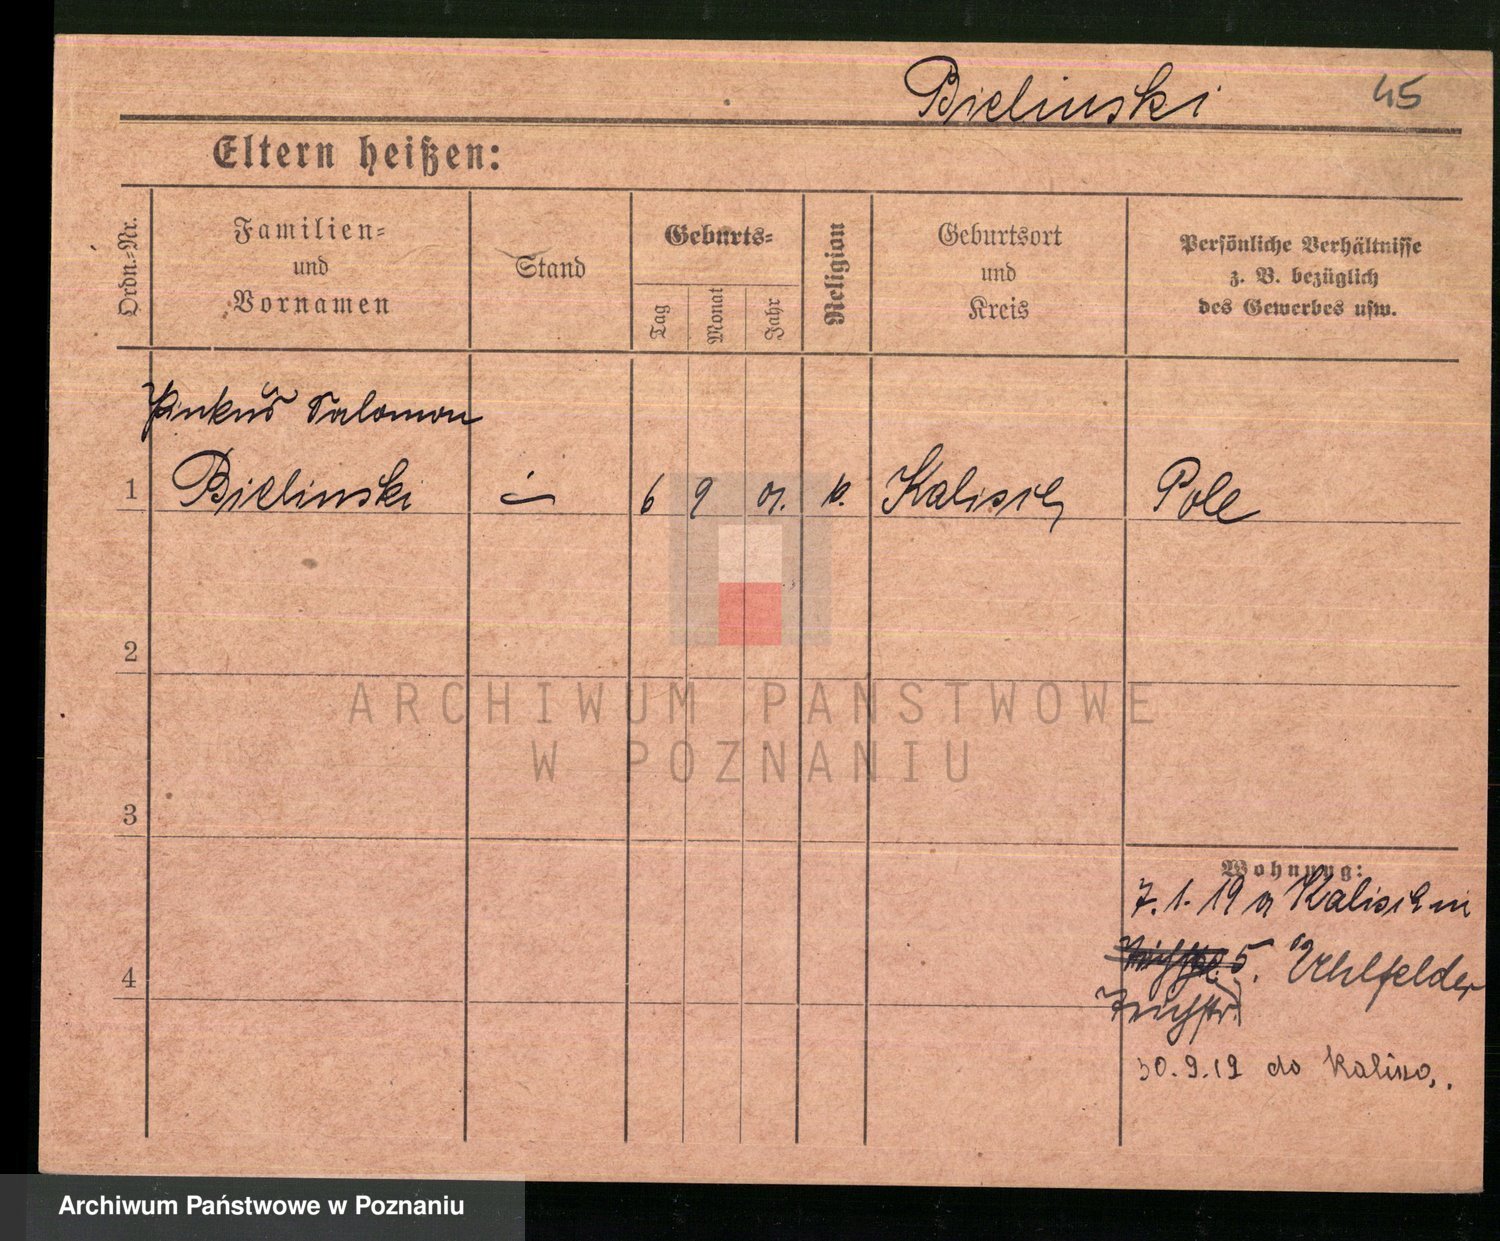 Bielinski 45
Eltern heißen:
Ordn.-Nr.
Familien-
und
Vornamen
Stand
Geburts-
Tag
Monat
Jahr
Religion
Geburtsort
und
Kreis
Persönliche Verhältnisse
z. B. bezüglich
des Gewerbes usw.
Pinkus Salomon
1 Bielinski 6 9 01. Kalisch Pole
2
3
4
Wohnung:
7. 1. 19 Kalisch in
5. Uhlfelder
30.9.19 do Kalisza.
ARCHIWUM PAŃSTWOWE
W POZNANIU
Archiwum Państwowe w Poznaniu